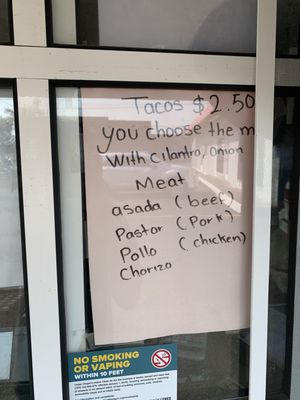 Tacos $2.50
you choose the m
With cilantro, Onion
Meat
asada (beef)
Pastor (Pork)
Pollo (chicken)
Chorizo
NO SMOKING
OR VAPING
WITHIN 10 FEET